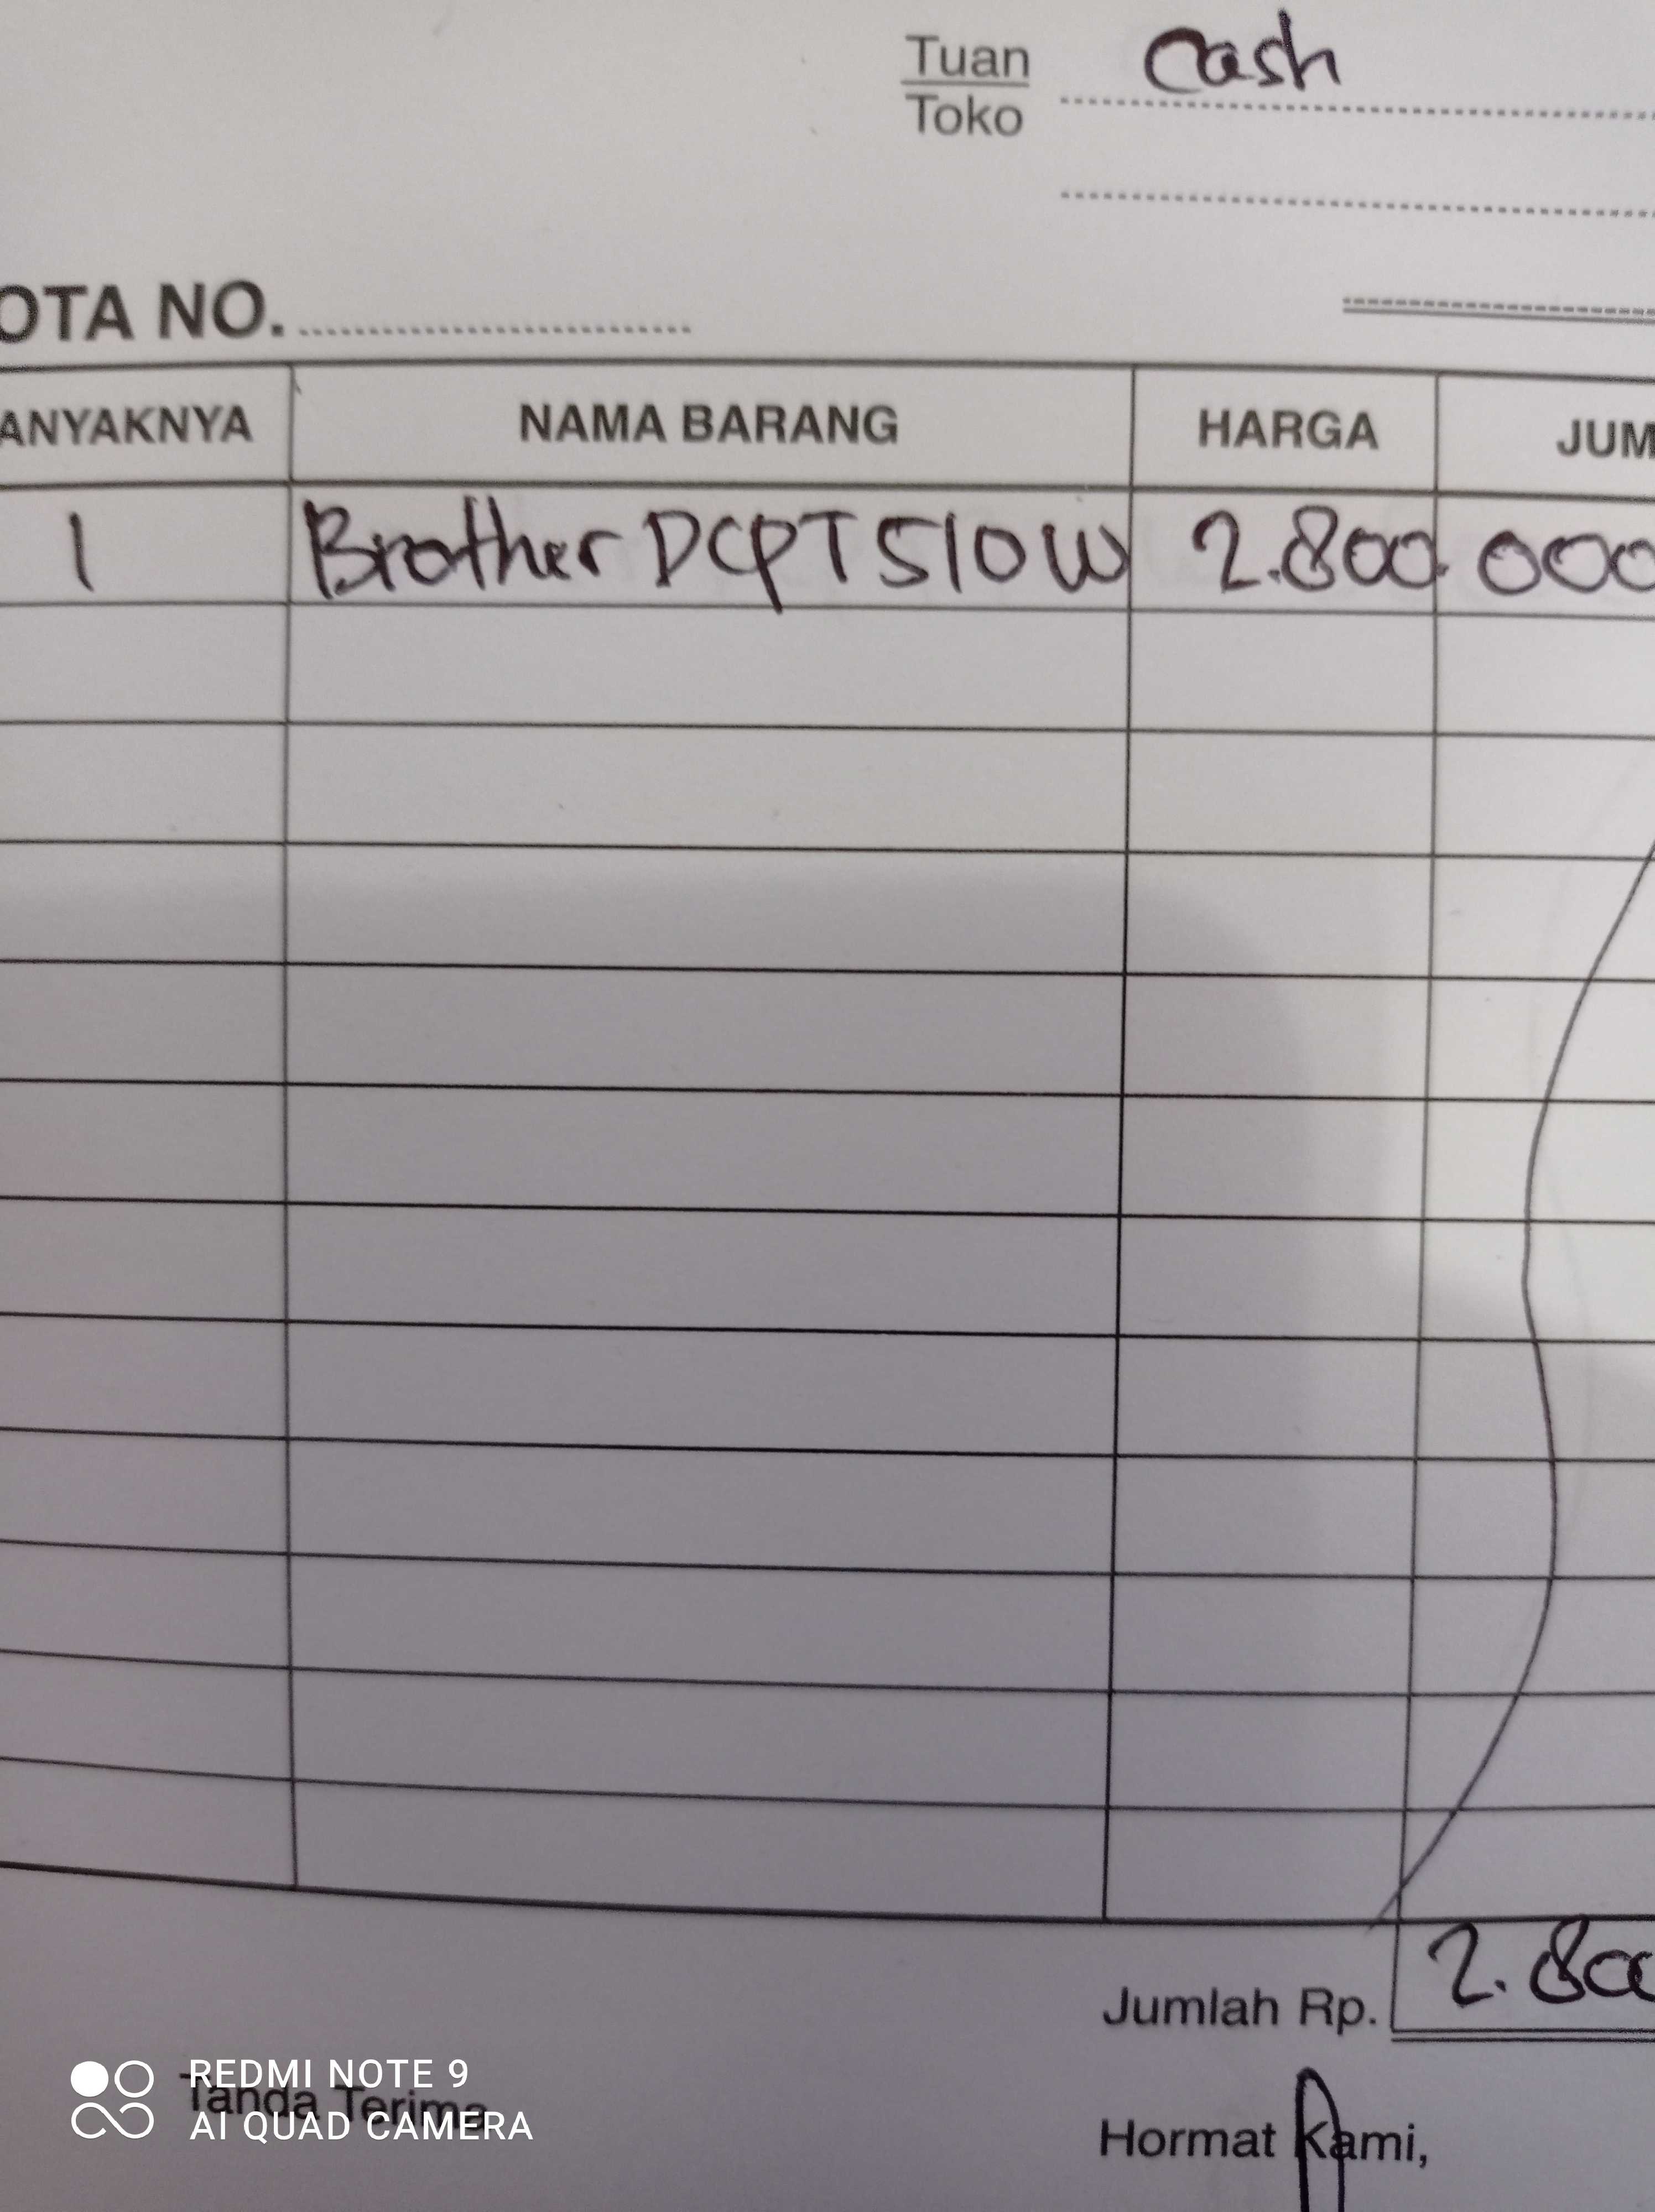 Tuan Cash
Toko
OTA NO.
ANYAKNYA NAMA BARANG HARGA JUM
1 Brother DCPT510W 2.800.000
Jumlah Rp. 2.800
Tanda Terima
Hormat Kami,
REDMI NOTE 9
AI QUAD CAMERA